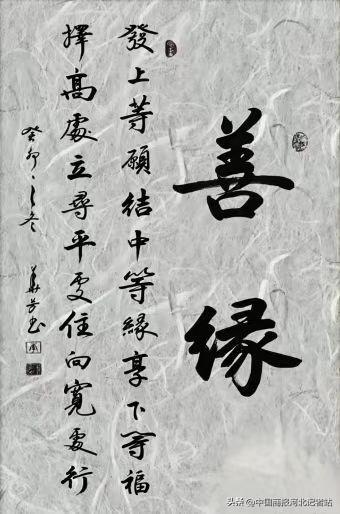 善緣
發上等願結中等緣享下等福
擇高處立尋平处住向寬处行
癸卯之冬
头条 @中国商报河北记者站